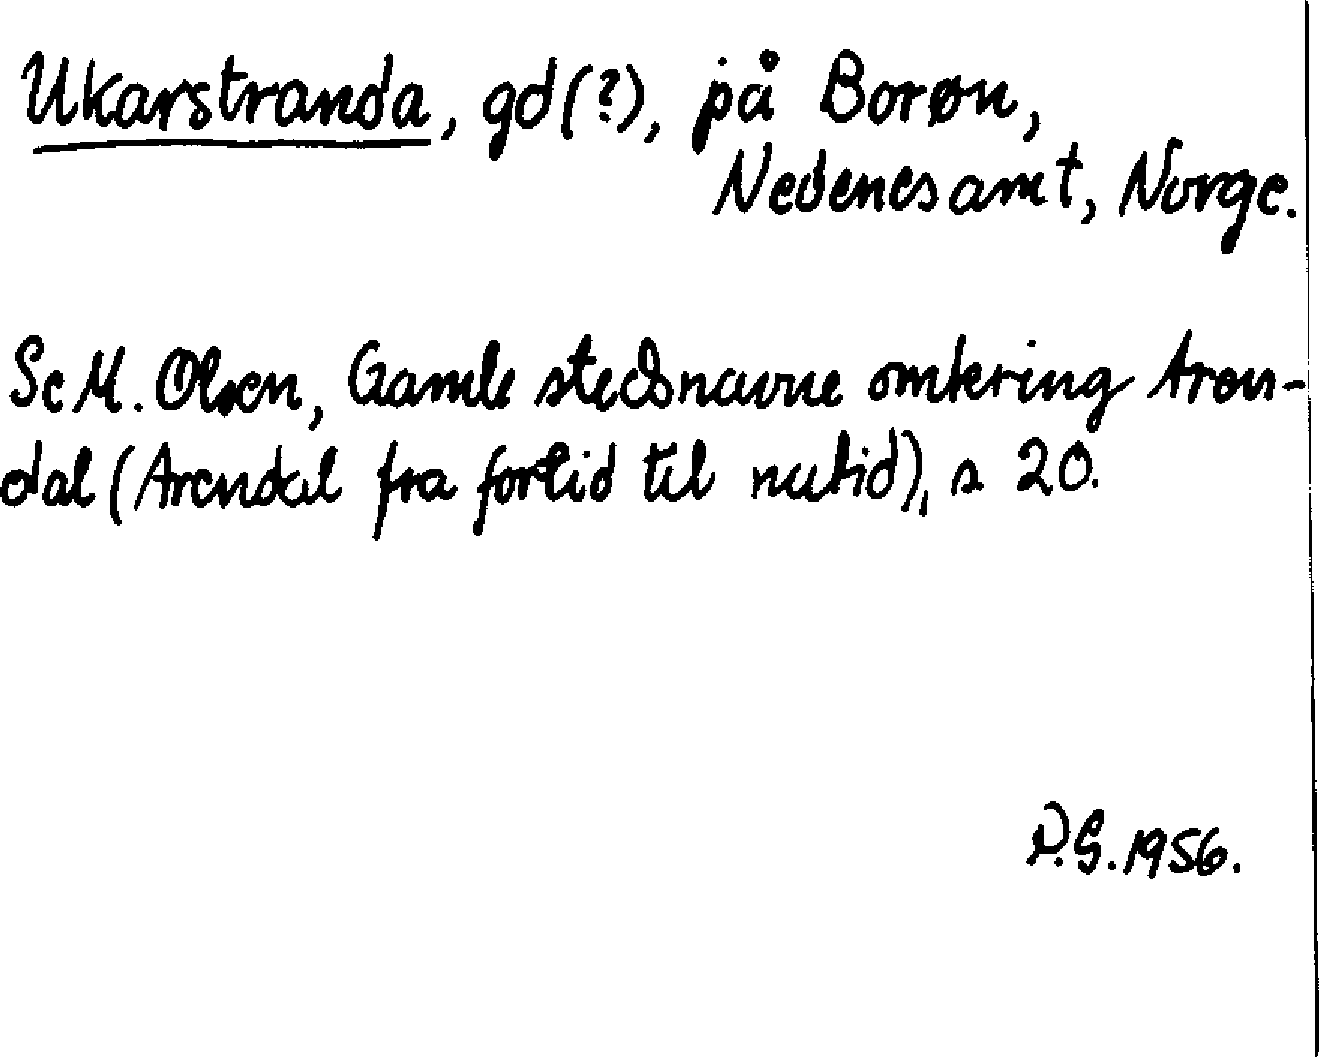 Ukarstranda, gd(?), på Borøn,
Nedenesamt, Norge.
Se M. Olsen, Gamle stedsnavne omkring Aren-
dal (Arendal fra fortid til nutid), s 20.
P.G. 1956.